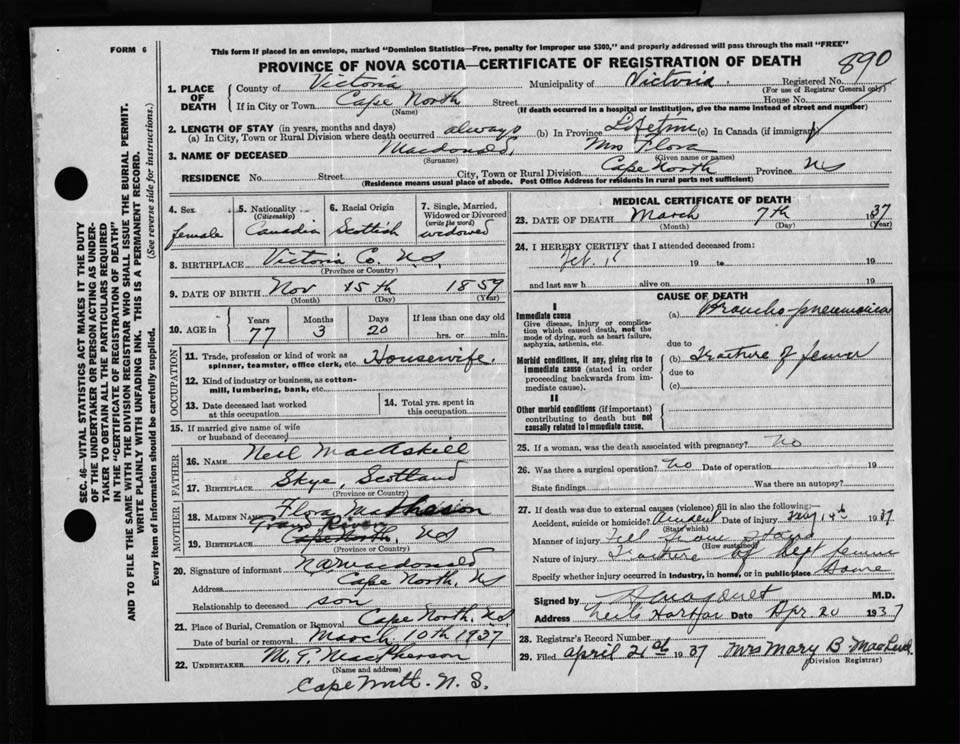 FORM 6
This form if placed in an envelope, marked "Dominion Statistics—Free, penalty for improper use $300," and properly addressed will pass through the mail "FREE"
PROVINCE OF NOVA SCOTIA—CERTIFICATE OF REGISTRATION OF DEATH
890
1. PLACE OF DEATH
County of Victoria Municipality of Victoria. Registered No.
(For use of Registrar General only)
If in City or Town Cape North Street House No.
(Name) (If death occurred in a hospital or institution, give the name instead of street and number)
2. LENGTH OF STAY (in years, months and days)
(a) In City, Town or Rural Division where death occurred always (b) In Province Lifetime (c) In Canada (if immigrant)
3. NAME OF DECEASED Macdonald, Mrs Flora
(Surname) (Given name or names)
RESIDENCE No. Street City, Town or Rural Division Cape North Province NS
(Residence means usual place of abode. Post Office Address for residents in rural parts not sufficient)
4. Sex female
5. Nationality (Citizenship) Canadian
6. Racial Origin Scottish
7. Single, Married, Widowed or Divorced (write the word) widowed
8. BIRTHPLACE Victoria Co. N.S.
(Province or Country)
9. DATE OF BIRTH Nov 15th 1859
(Month) (Day) (Year)
10. AGE in Years 77 Months 3 Days 20 If less than one day old hrs. or min.
OCCUPATION
11. Trade, profession or kind of work as spinner, teamster, office clerk, etc. Housewife.
12. Kind of industry or business, as cotton-mill, lumbering, bank, etc.
13. Date deceased last worked at this occupation
14. Total yrs. spent in this occupation
15. If married give name of wife or husband of deceased
FATHER
16. NAME Neil MacAskill
17. BIRTHPLACE Skye, Scotland
(Province or Country)
MOTHER
18. MAIDEN NAME Flora Matheson
Grand River
19. BIRTHPLACE Cape North, NS
(Province or Country)
20. Signature of informant
Address Cape North, NS
Relationship to deceased son
21. Place of Burial, Cremation or Removal Cape North, N.S.
Date of burial or removal March 10th 1937
22. UNDERTAKER M. P. MacPherson
(Name and address)
Cape North. N. S.
MEDICAL CERTIFICATE OF DEATH
23. DATE OF DEATH March 7th 1937
(Month) (Day) (Year)
24. I HEREBY CERTIFY that I attended deceased from:
Feb. 15 19 to 19
and last saw h alive on 19
CAUSE OF DEATH
I
Immediate cause
Give disease, injury or complication which caused death, not the mode of dying, such as heart failure, asphyxia, asthenia, etc.
(a) Broncho pneumonia
due to
Morbid conditions, if any, giving rise to immediate cause (stated in order proceeding backwards from immediate cause).
(b) Fracture of femur
due to
(c)
II
Other morbid conditions (if important) contributing to death but not causally related to immediate cause.
25. If a woman, was the death associated with pregnancy? No
26. Was there a surgical operation? No Date of operation 19
State findings Was there an autopsy?
27. If death was due to external causes (violence) fill in also the following:
Accident, suicide or homicide? Accident Date of injury 14th 1937
(State which)
Manner of injury Fell
(How sustained)
Nature of injury Fracture of left femur
Specify whether injury occurred in industry, in home, or in public place Home
Signed by M.D.
Address Neils Harbor Date Apr. 20 1937
28. Registrar's Record Number
29. Filed April 21st 1937 Mrs Mary B. MacLeod
(Division Registrar)
SEC. 46—VITAL STATISTICS ACT MAKES IT THE DUTY
OF THE UNDERTAKER OR PERSON ACTING AS UNDER-
TAKER TO OBTAIN ALL THE PARTICULARS REQUIRED
IN THE "CERTIFICATE OF REGISTRATION OF DEATH"
AND TO FILE THE SAME WITH THE DIVISION REGISTRAR WHO SHALL ISSUE THE BURIAL PERMIT.
WRITE PLAINLY WITH UNFADING INK. THIS IS A PERMANENT RECORD.
Every item of information should be carefully supplied. (See reverse side for instructions.)